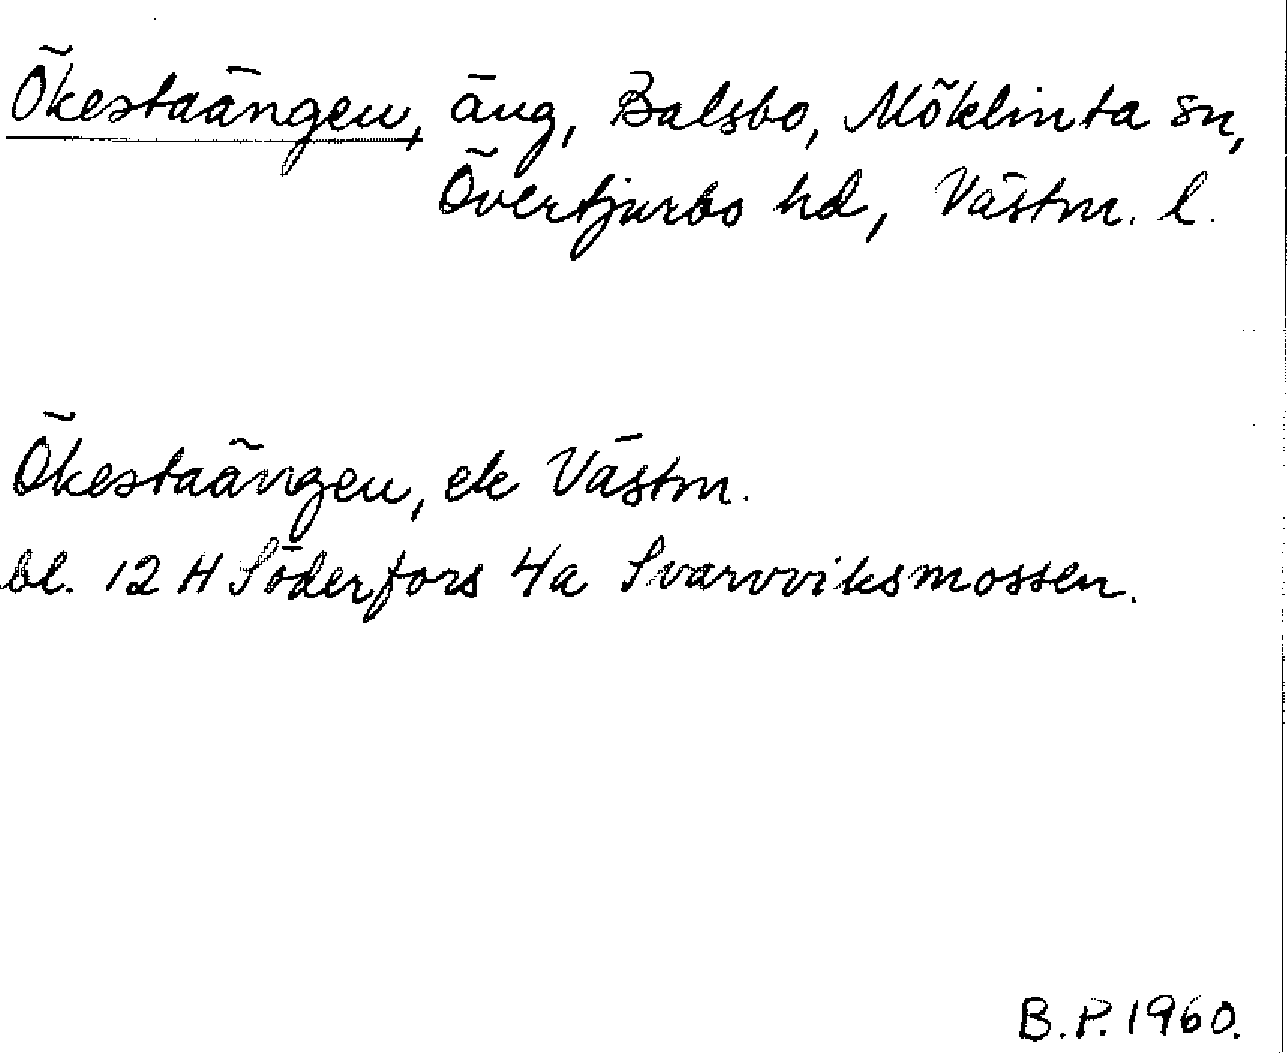 Ökestaängen, äng, Balsbo, Möklinta sn,
Övertjurbo hd, Västm. l.
Ökestaängen, ek Västm.
bl. 12 H Söderfors 4a Svarvviksmossen.
B.P. 1960.